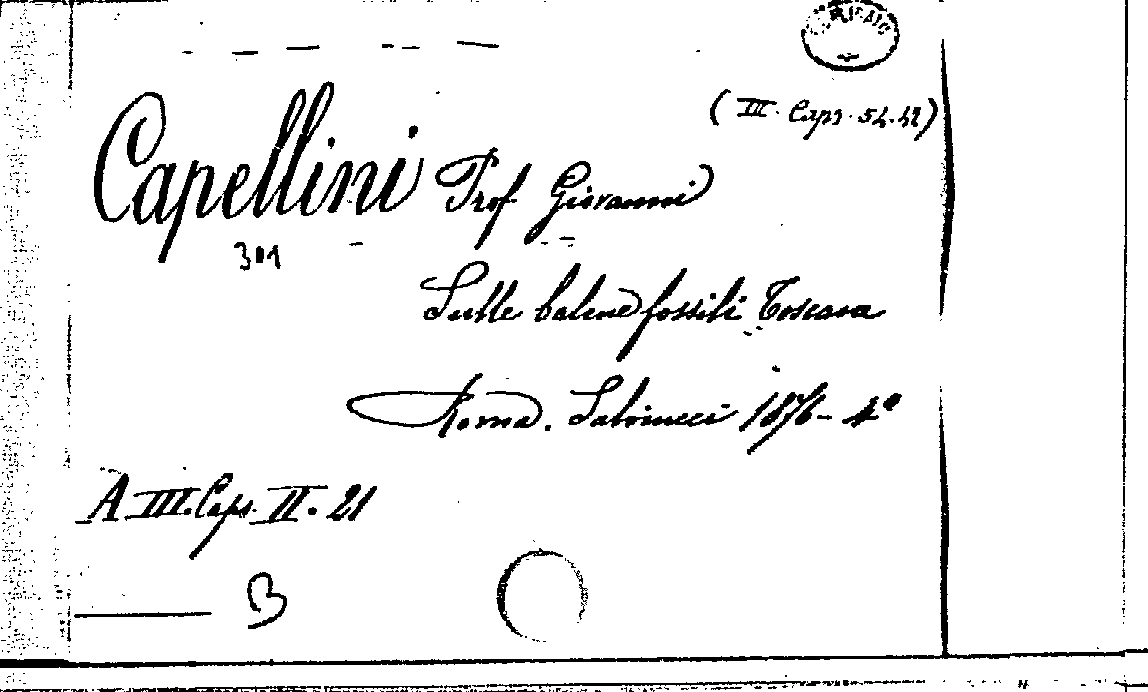 (III. Caps. 54.42)
Capellini Prof Giovanni
301
Sulle balene fossili Toscana
Roma. Salviucci 1876 - 4º
A III. Caps. II. 21
B